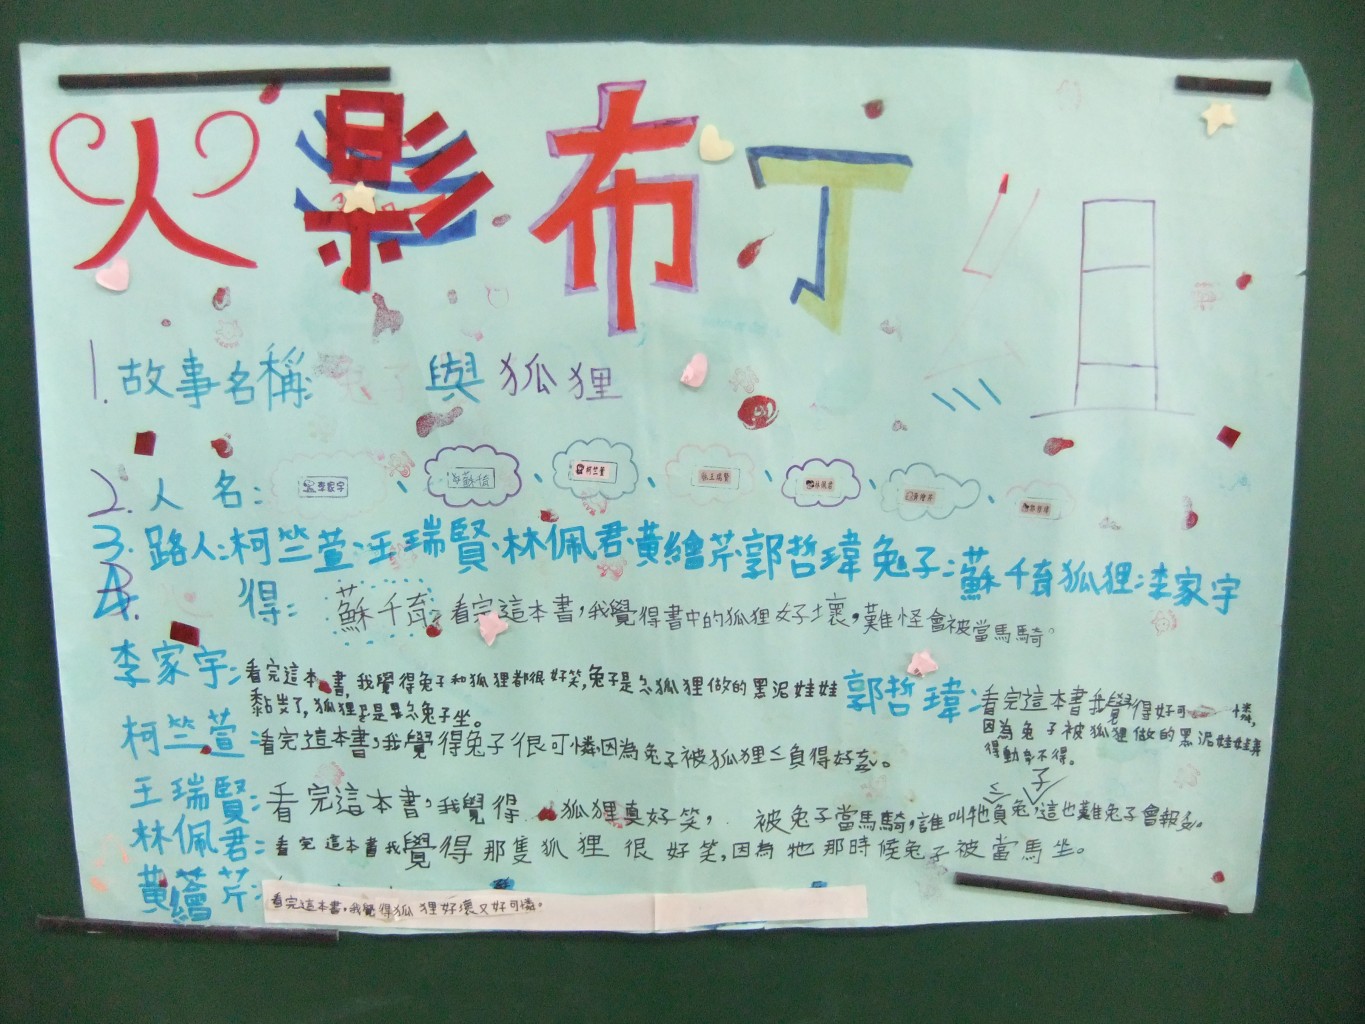 火影布丁
1. 故事名稱: 兔子與狐狸
2. 人名: 李家宇、蘇千倚、柯竺萱、王瑞賢、林佩君、黃繪芹、郭哲瑋
3. 路人:柯竺萱、王瑞賢、林佩君、黃繪芹、郭哲瑋 兔子:蘇千倚 狐狸:李家宇
4. 得: 蘇千倚:看完這本書,我覺得書中的狐狸好壞,難怪會被當馬騎。
李家宇:看完這本書,我覺得兔子和狐狸都很好笑,兔子是被狐狸做的黑泥娃娃
黏住了,狐狸是兔子坐。
郭哲瑋:看完這本書我覺得好可憐,
因為兔子被狐狸做的黑泥娃娃弄
得動彈不得。
柯竺萱:看完這本書,我覺得兔子很可憐,因為兔子被狐狸欺負得好慘。
王瑞賢:看完這本書,我覺得狐狸真好笑,被兔子當馬騎,誰叫牠欺負兔子,這也難兔子會報。
林佩君:看完這本書我覺得那隻狐狸很好笑,因為牠那時候兔子被當馬坐。
黃繪芹:看完這本書,我覺得狐狸好壞又好可憐。